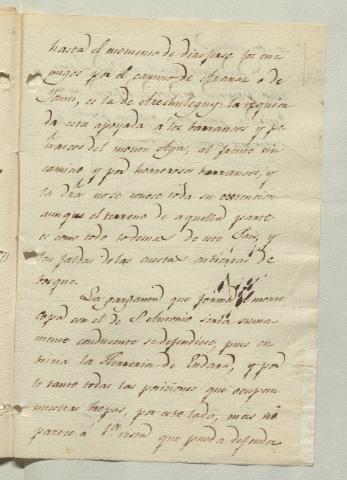 hasta el momento de dirigirse los ene
migos por el camino de Aranaz o de
es la de Arechuleguy: la izquier
da esta apoyada a los barrancos y pe
ñascos del monte Aya, al frente sin
camino y por horrorosos barrancos, y
la dra. no se conoce toda su extencion
aunque el terreno de aquella parte
es como todo lo demas de este Pais, y
las faldas de las cuestas cubiertas de
bosque.
La garganta que forma el monte
con el de Sn. Antonio seria suma
mente conducente se defendiese, pues cu
briria la Herreria de Endara, y por
lo tanto todas las posiciones que ocupan
nuestras tropas, por este lado, mas no
parece a 1a. vista que pueda defender